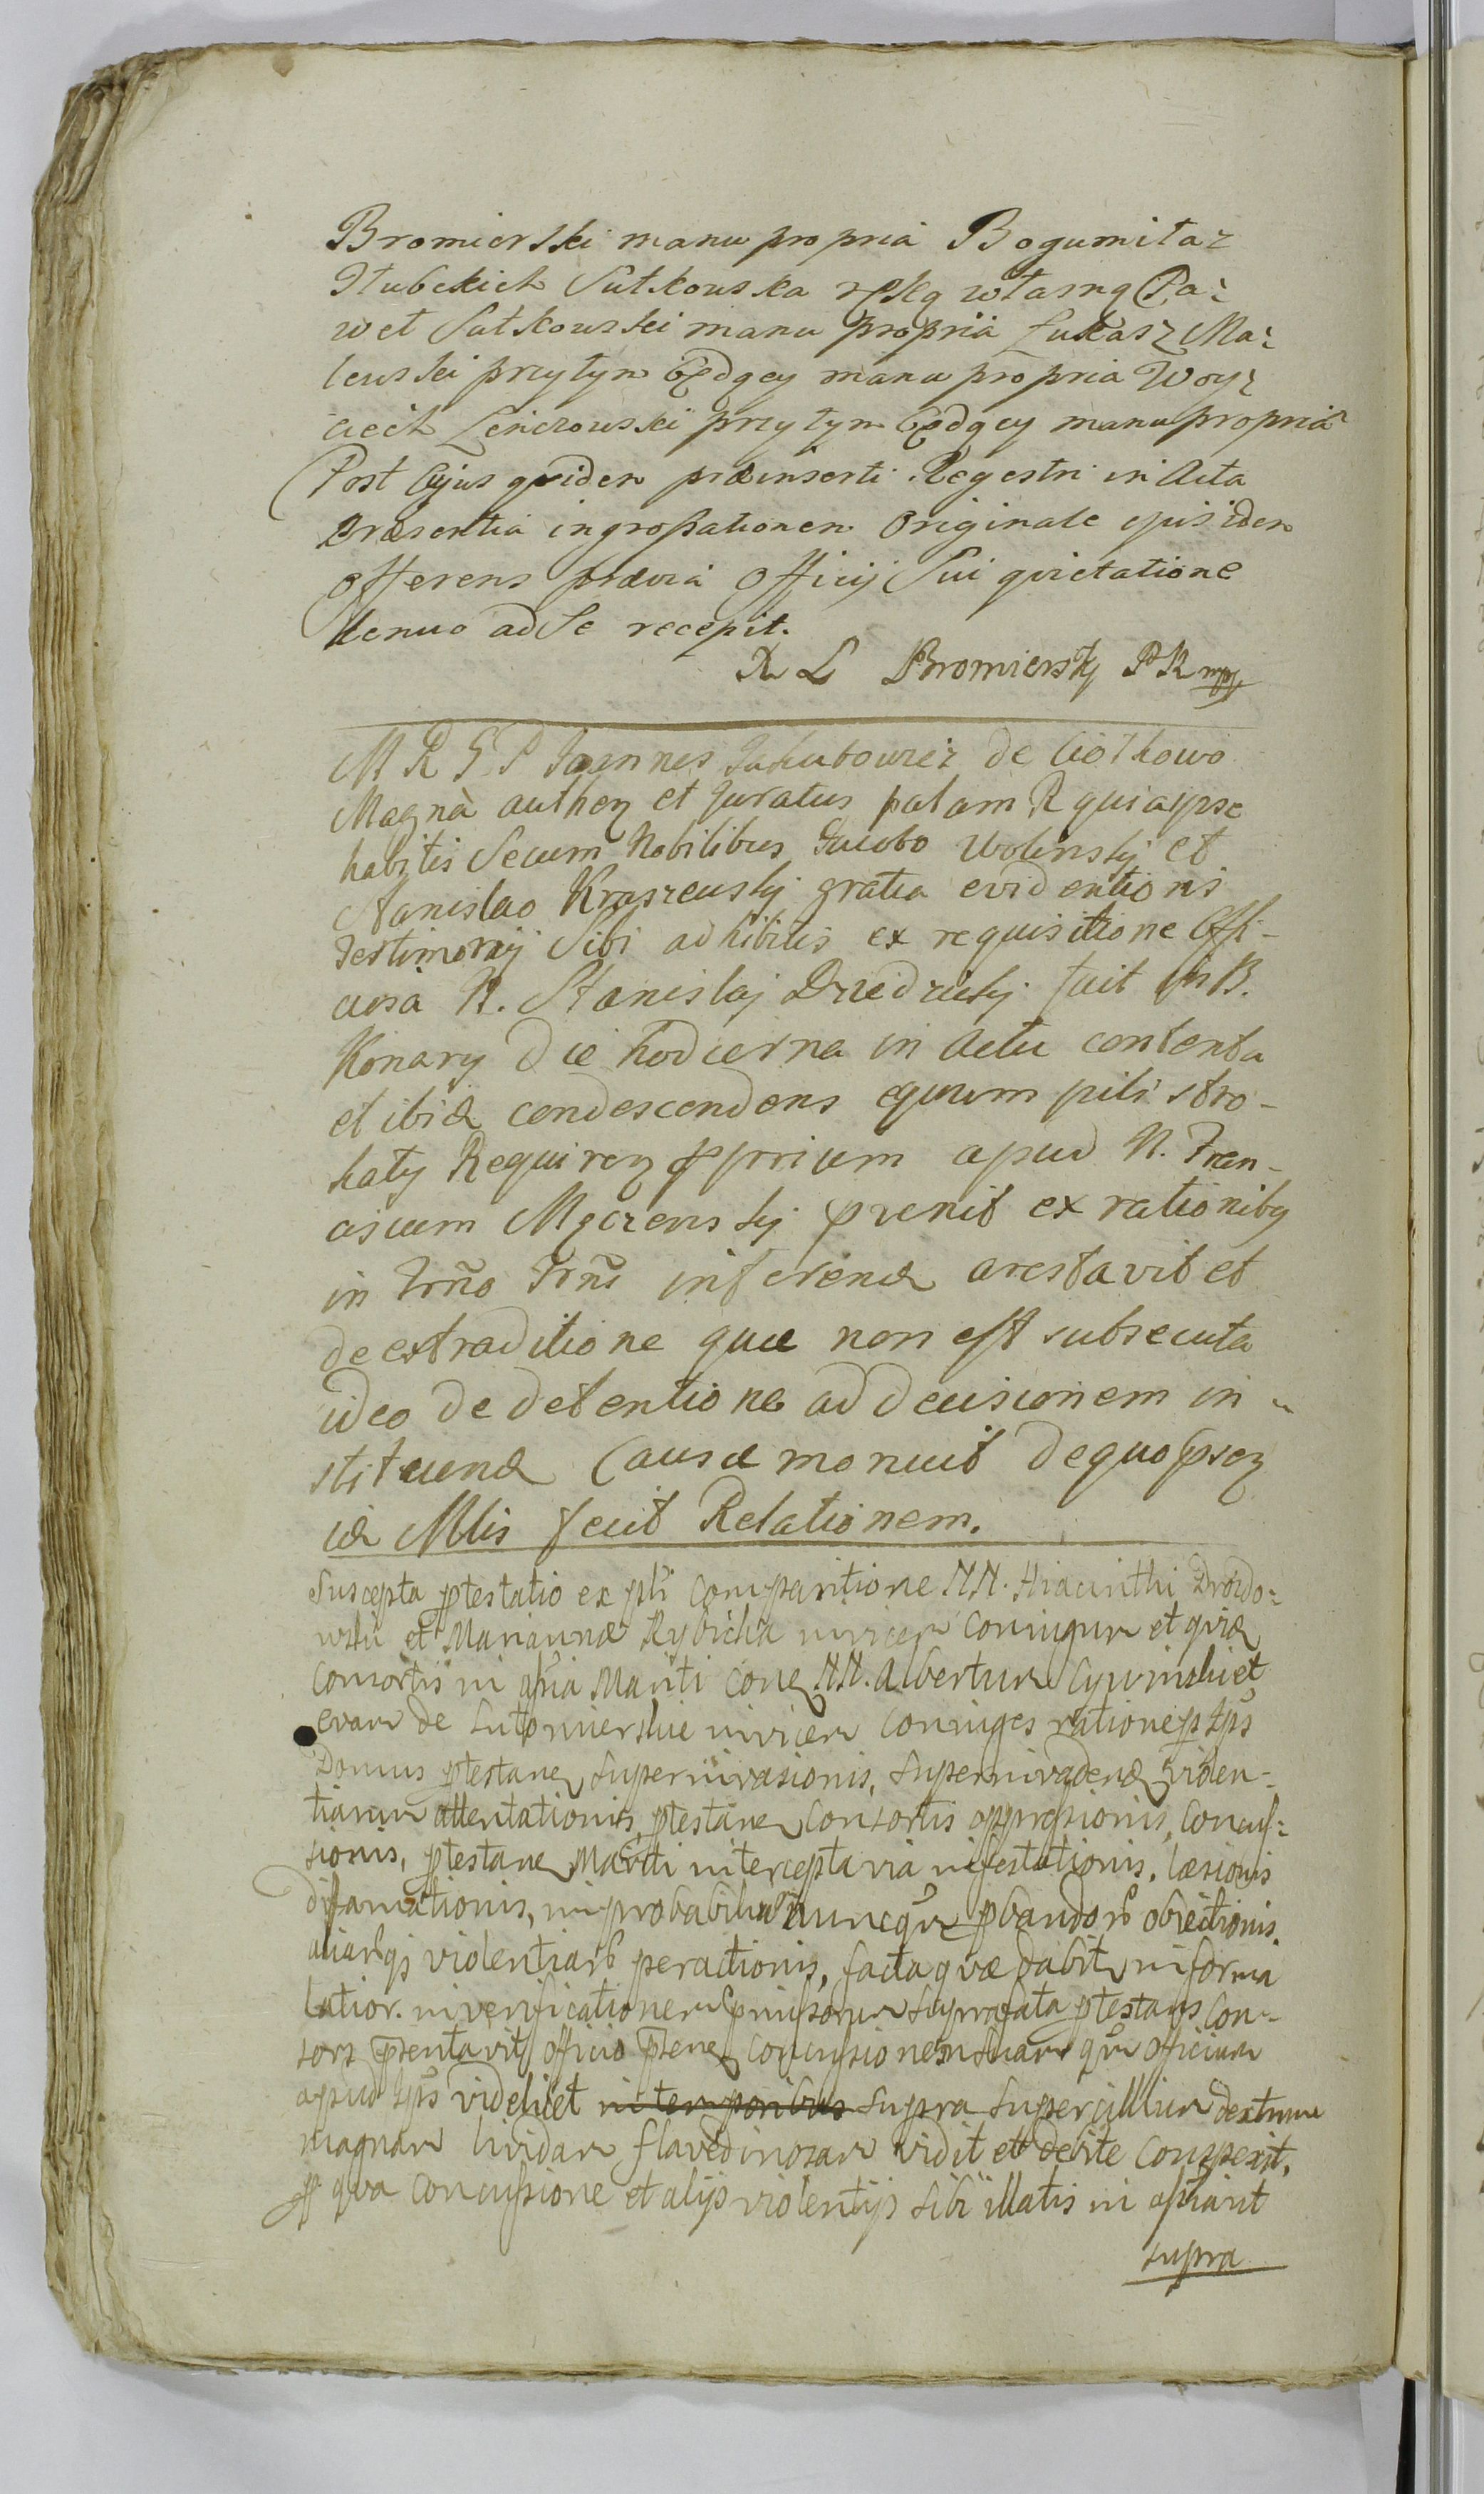 Bromierski manu propria Bogumiła z
Hubickich Sutkowska ręką własną Pa:
weł Sutkowski manu propria Łukasz Ma:
lewski przytym będący manu propria Woy:
ciech Lenczowski przytym będący manu propria
Post Cujus quidem præinserti Regestri in Acta
Præsentia ingrossationem Originale ejus idem
offerens prævia Officij Sui quietatione
denuo ad Se recepit.
L Bromiersky PK mpp
M R G P Joannes Jakubowicz de Ciołkowo
Magna authen et Juratus palam R quia ipse
habitis Secum Nobilibus Jacobo Wolinsky et
Stanislao Kraszewsky gratia evidentioris
Testimonij Sibi adhibitis ex requisitione Offi-
ciosa N. Stanislaj Dziedzicky fuit in B.
Konary die hodierna in Actu contenta
et ibid condescendens equum pili stro-
katy Requiren pprium apud N. Fran-
ciscum Mączewsky pvenit ex rationiby
in Trno Trns inferend arestavit et
de extraditione quæ non est subsecuta
ideo de detentione ad decisionem in -
stituend Causæ monuit de quo psen
id Mlis fecit Relationem.
Suscepta ptestatio ex psti comparitione NN. Hiacinthi Drozdo:
wski et Mariannæ Rybicka invicem Conjugum et quid
Consortis in aria Mariti Cone NN. Albertum Cywinski et
evam de Lutomierskie invicem Conjuges ratione p tps
Domus ptestane superinvasionis, superinvadend violen:
tiarum attentationis, ptestane Consortis oppressionis, Concus:
sionis, ptestane Mariti intercepta via infestationis, læsionis
difamationis, improbabilium nuncqm pbandor obiectionis,
aliarqs violentiar peractionis, facta quæ dabit in forma
latior. in verificationem pmissorum suprafata ptestans Con-
sors psentavit officio psene concussionem suam qm officium
apud tps videlicet in temporibus supra supercillium dextrum
magnam lividam flavedinosam vidit et debite conspexit,
p qua concussione et alijs violentijs sibi illatis in
supra